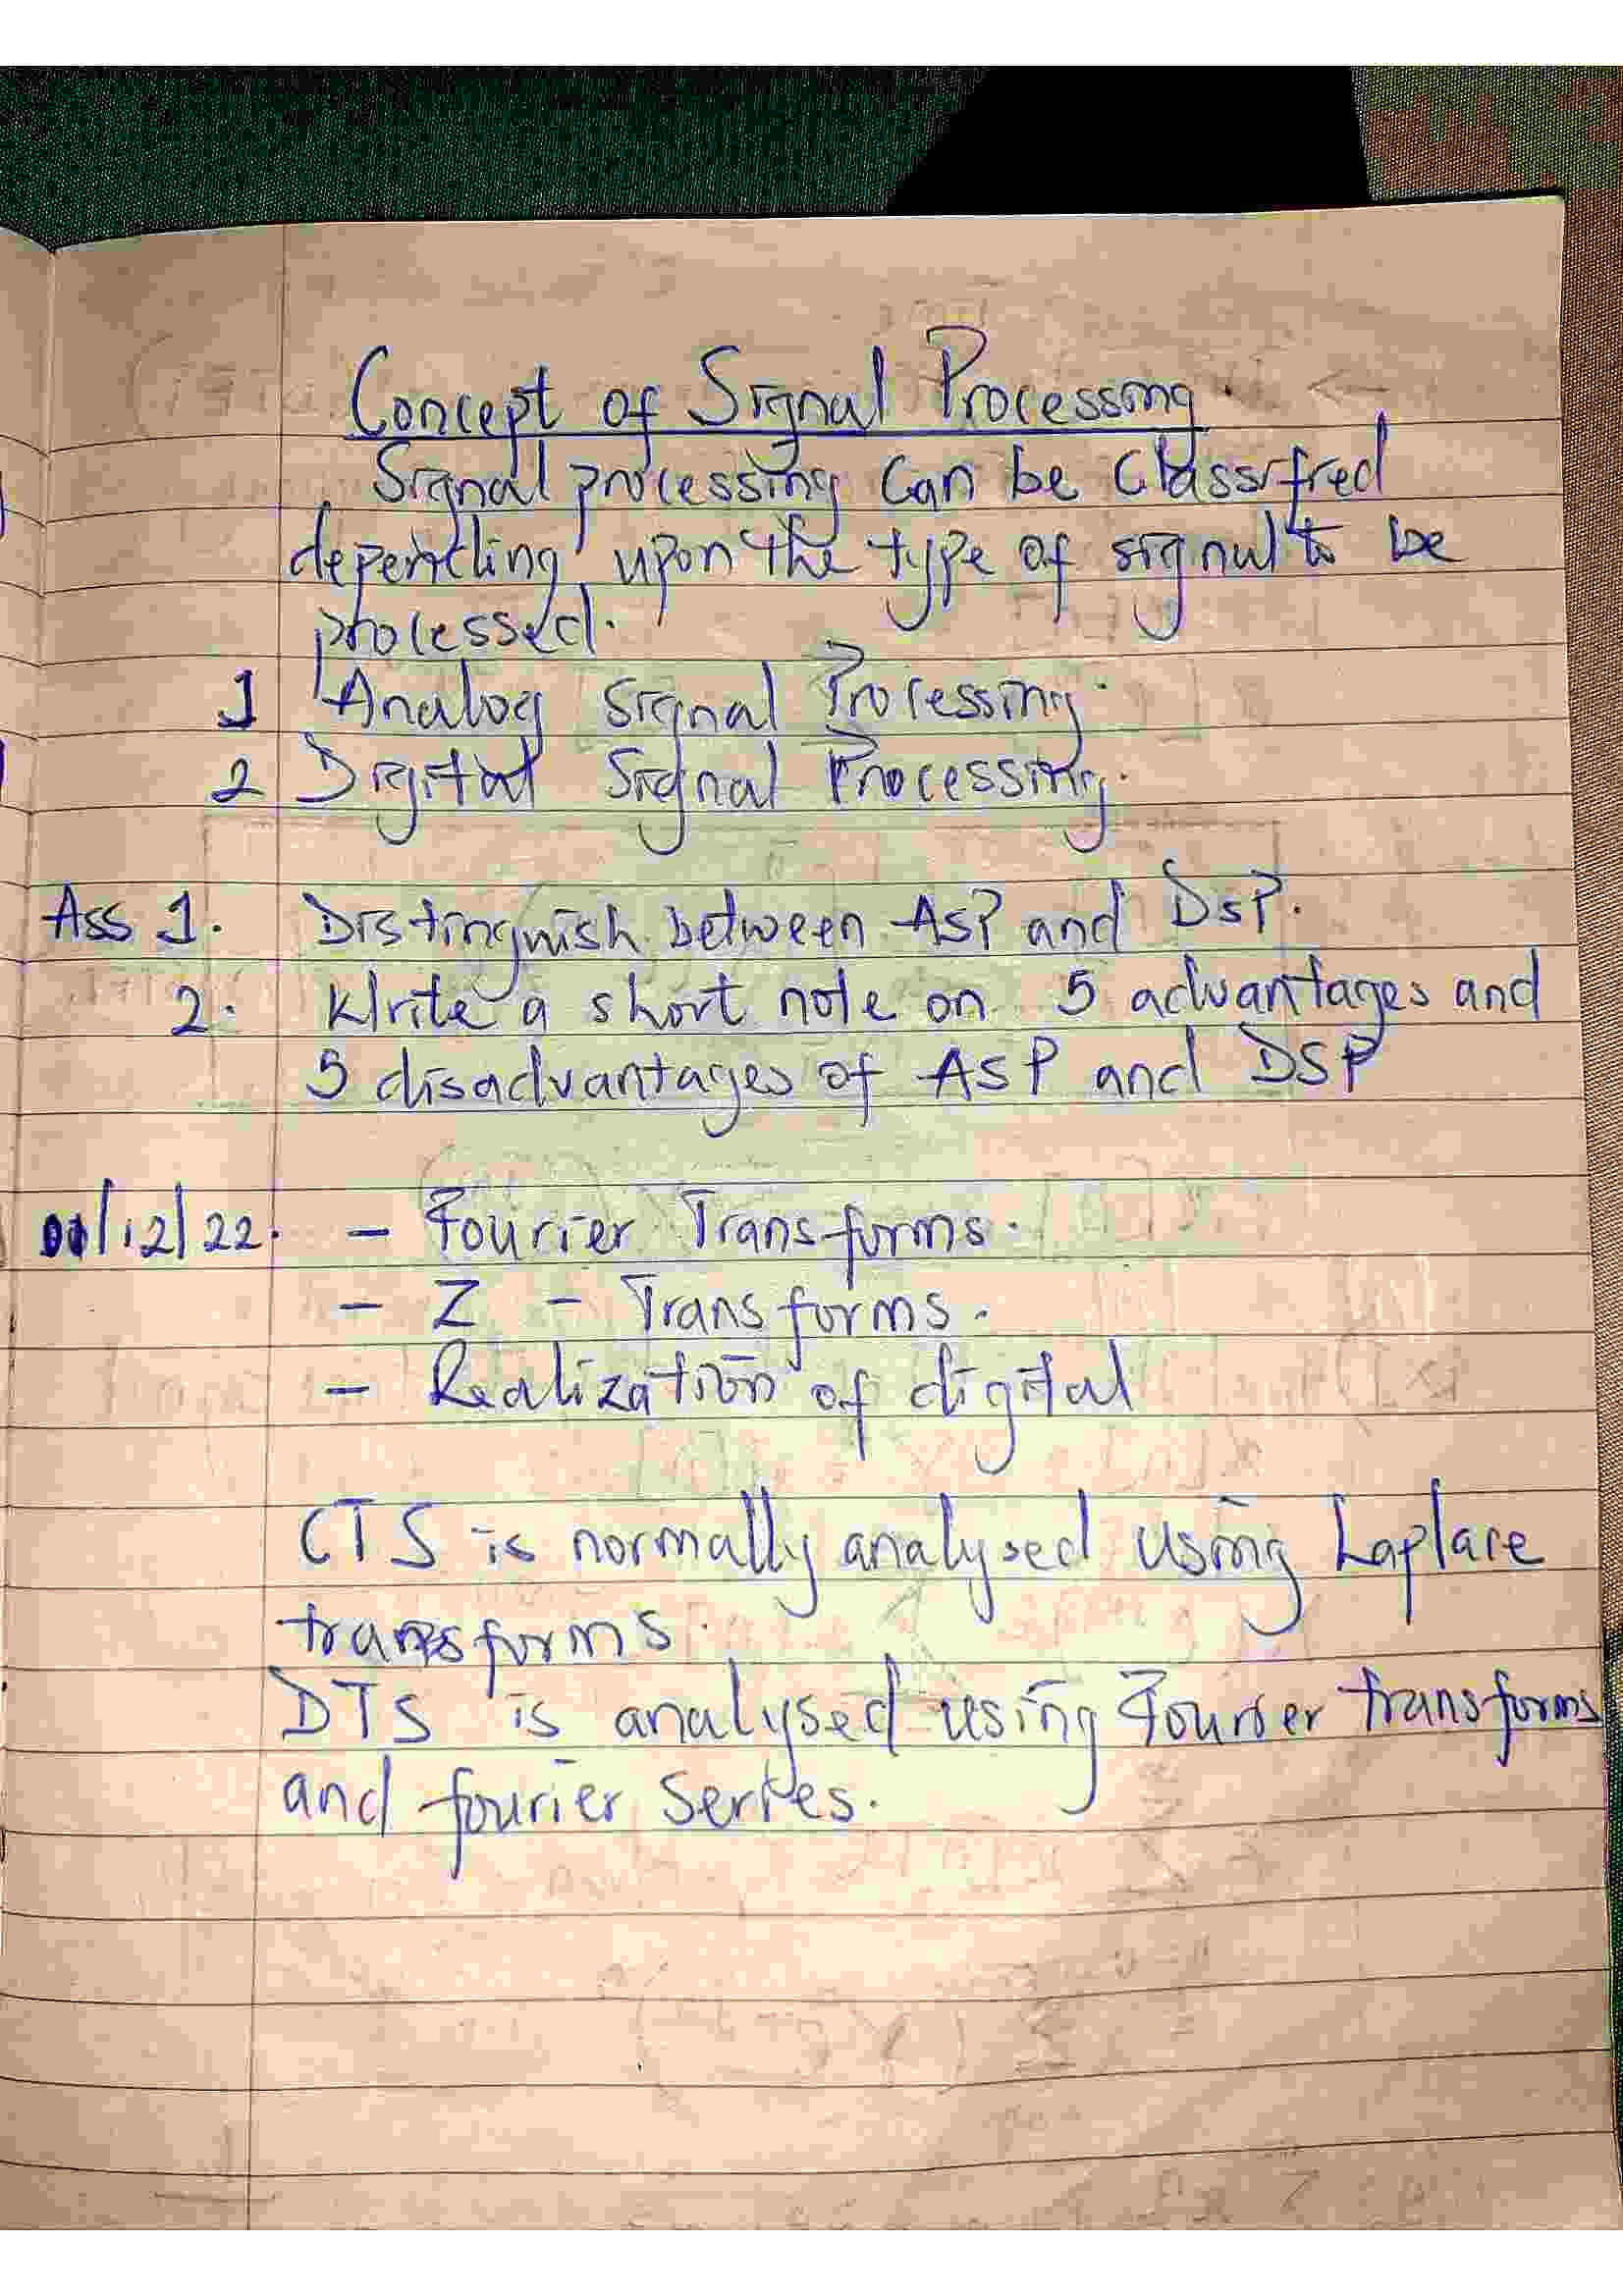 Concept of Signal Processing.
Signal processing can be classified
depending upon the type of signal to be
processed.
1 Analog Signal Processing.
2 Digital Signal Processing.
Ass 1. Distinguish between ASP and DSP.
2. Write a short note on 5 advantages and
5 disadvantages of ASP and DSP
/12/22. - Fourier Transforms.
- Z - Transforms.
- Realization of digital
CTS is normally analysed using Laplace
transforms.
DTS is analysed using Fourier transforms
and fourier series.